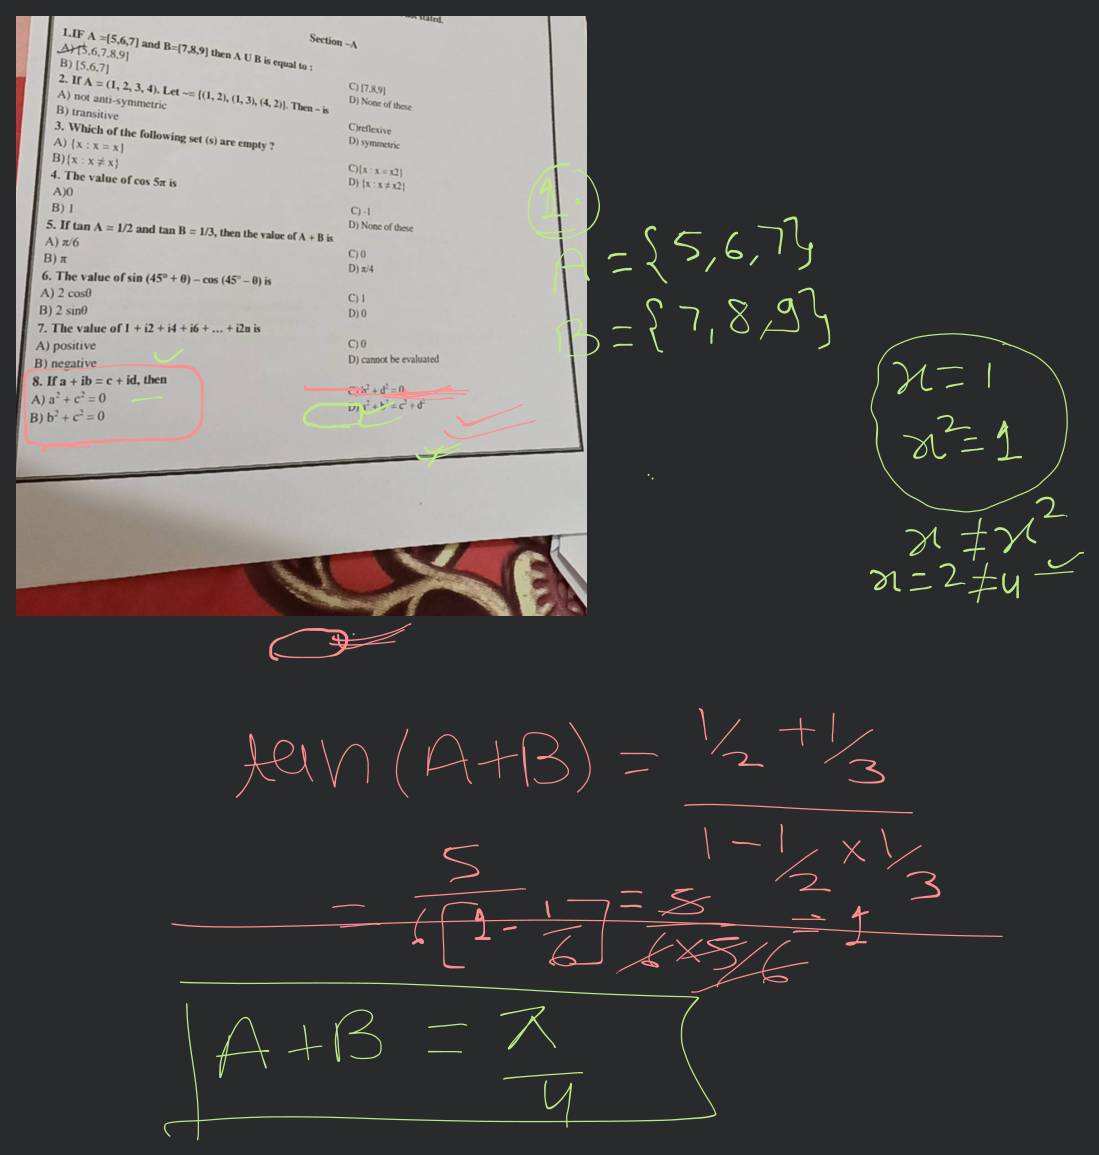 stated.
Section –A
1.IF A ={5,6,7] and B={7,8,9] then A U B is equal to :
A) {5,6,7,8,9]
C) [7,8,9]
B) {5,6,7]
D) None of these
2. If A = (1, 2, 3, 4). Let ~= {(1, 2), (1, 3), (4, 2)]. Then ~ is
A) not anti-symmetric
C)reflexive
B) transitive
D) symmetric
3. Which of the following set (s) are empty ?
A) {x : x = x]
C){x : x = x2]
B){x : x ≠ x}
D) {x : x ≠ x2]
4. The value of cos 5π is
A)0
C) -1
B) 1
D) None of these
5. If tan A = 1/2 and tan B = 1/3, then the value of A + B is
A) π/6
C) 0
B) π
D) π/4
6. The value of sin (45° + θ) – cos (45° – θ) is
A) 2 cosθ
C) 1
B) 2 sinθ
D) 0
7. The value of 1 + i2 + i4 + i6 + … + i2n is
A) positive
C) 0
B) negative
D) cannot be evaluated
8. If a + ib = c + id, then
A) a² + c² = 0
C) b² + d² = 0
B) b² + c² = 0
D) a² + b² = c² + d²
1.
A = {5,6,7}
B = {7,8,9}
x = 1
x² = 1
x ≠ x²
x = 2 ≠ 4
tan(A+B) = 1/2 + 1/3
1 - 1/2 × 1/3
= 5 / 6[1 - 1/6] = 5 / 6×5/6 = 1
A+B = π/4